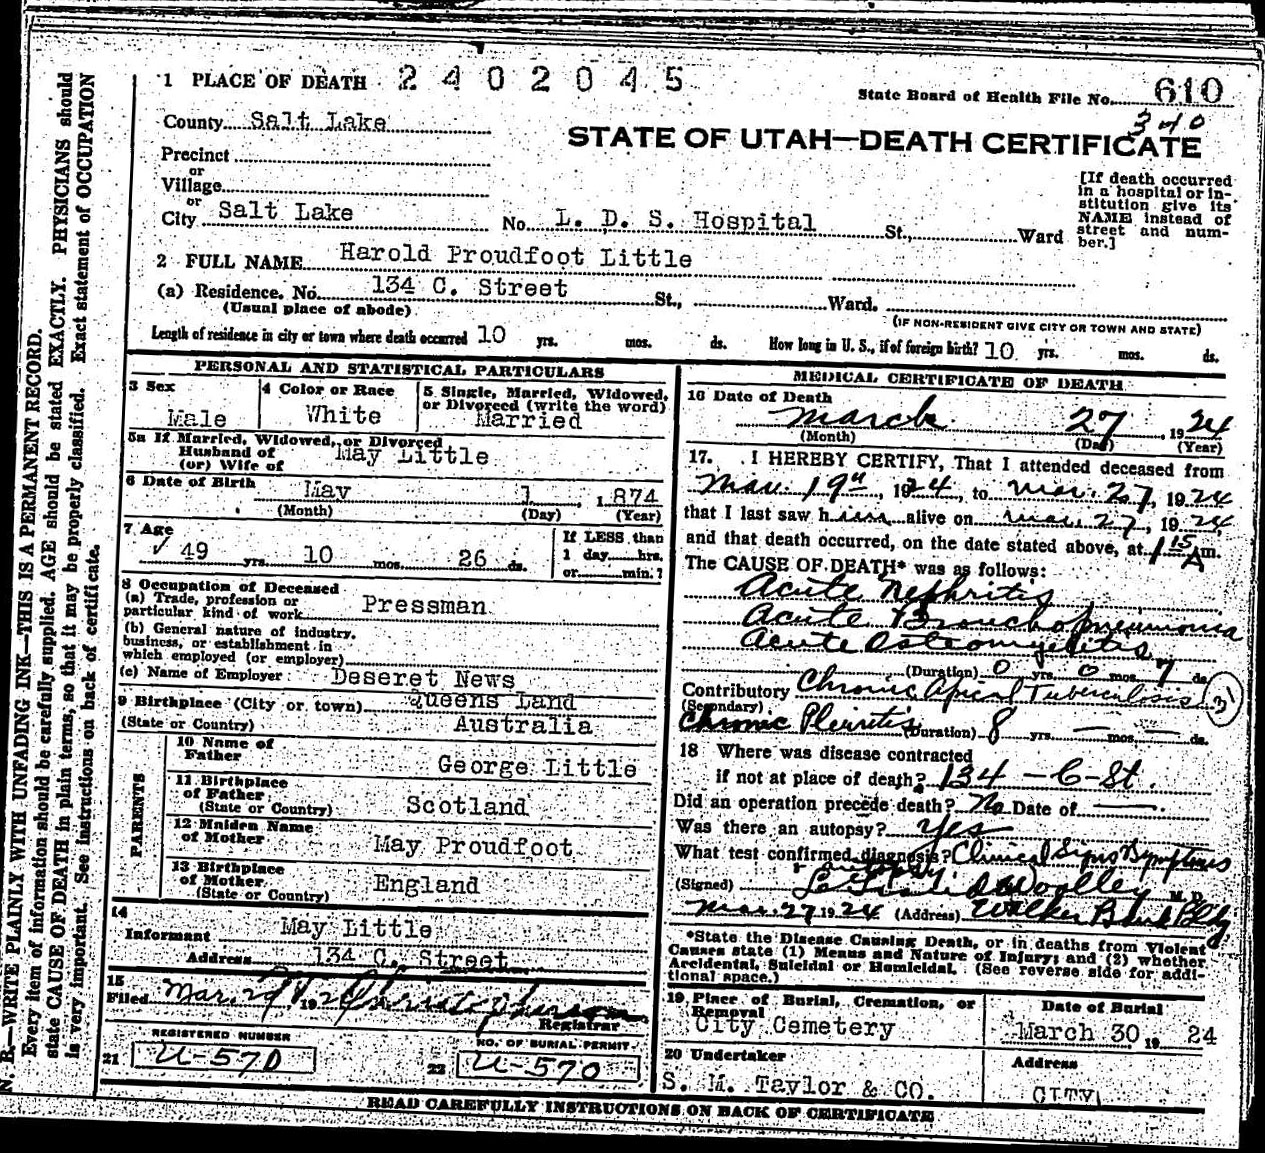 1 PLACE OF DEATH 2402045
State Board of Health File No. 610
340
County Salt Lake
STATE OF UTAH—DEATH CERTIFICATE
Precinct
or
Village
or
City Salt Lake No. L. D. S. Hospital St., Ward
[If death occurred in a hospital or institution give its NAME instead of street and number.]
2 FULL NAME Harold Proudfoot Little
(a) Residence. No. 134 C. Street St., Ward.
(Usual place of abode) (IF NON-RESIDENT GIVE CITY OR TOWN AND STATE)
Length of residence in city or town where death occurred 10 yrs. mos. ds. How long in U. S., if of foreign birth? 10 yrs. mos. ds.
PERSONAL AND STATISTICAL PARTICULARS
3 Sex
Male
4 Color or Race
White
5 Single, Married, Widowed,
or Divorced (write the word)
Married
5a If Married, Widowed, or Divorced
Husband of
(or) Wife of May Little
6 Date of Birth May 1 , 1874
(Month) (Day) (Year)
7 Age
✓ 49 yrs. 10 mos. 26 ds.
If LESS than
1 day hrs.
or min.?
8 Occupation of Deceased
(a) Trade, profession or
particular kind of work Pressman
(b) General nature of industry,
business, or establishment in
which employed (or employer)
(c) Name of Employer Deseret News
9 Birthplace (City or town) Queens Land
(State or Country) Australia
PARENTS
10 Name of
Father George Little
11 Birthplace
of Father
(State or Country) Scotland
12 Maiden Name
of Mother May Proudfoot
13 Birthplace
of Mother
(State or Country) England
14
Informant May Little
Address 134 C. Street
15
Filed Mar. 27 192
Registrar
REGISTERED NUMBER
21 U-570
NO. OF BURIAL PERMIT
22 U-570
MEDICAL CERTIFICATE OF DEATH
16 Date of Death
March 27 , 1924
(Month) (Day) (Year)
17. I HEREBY CERTIFY, That I attended deceased from
Mar. 19th, 1924, to Mar. 27, 1924
that I last saw him alive on Mar. 27, 1924,
and that death occurred, on the date stated above, at 1 15 A m.
The CAUSE OF DEATH* was as follows:
Acute Nephritis
Acute Bronchopneumonia
Acute Osteomyelitis
(Duration) 0 yrs. 0 mos. 7 ds.
Contributory Chronic Apical Tuberculosis
31
(Secondary)
Chronic Pleuritis (Duration) 8 yrs. — mos. — ds.
18 Where was disease contracted
if not at place of death? 134 - C - St.
Did an operation precede death? No Date of —
Was there an autopsy? Yes
What test confirmed diagnosis? Clinical Signs Symptoms
& autopsy.
(Signed) Woolley M. D.
Mar. 27 1924 (Address) Walker Bank Bldg
*State the Disease Causing Death, or in deaths from Violent
Causes state (1) Means and Nature of Injury; and (2) whether
Accidental, Suicidal or Homicidal. (See reverse side for addi-
tional space.)
19 Place of Burial, Cremation, or
Removal
City Cemetery
Date of Burial
March 30 19 24
20 Undertaker
S. M. Taylor & CO.
Address
CITY
READ CAREFULLY INSTRUCTIONS ON BACK OF CERTIFICATE
N. B.—WRITE PLAINLY WITH UNFADING INK—THIS IS A PERMANENT RECORD.
Every item of information should be carefully supplied. AGE should be stated EXACTLY. PHYSICIANS should
state CAUSE OF DEATH in plain terms, so that it may be properly classified. Exact statement of OCCUPATION
is very important. See instructions on back of certificate.